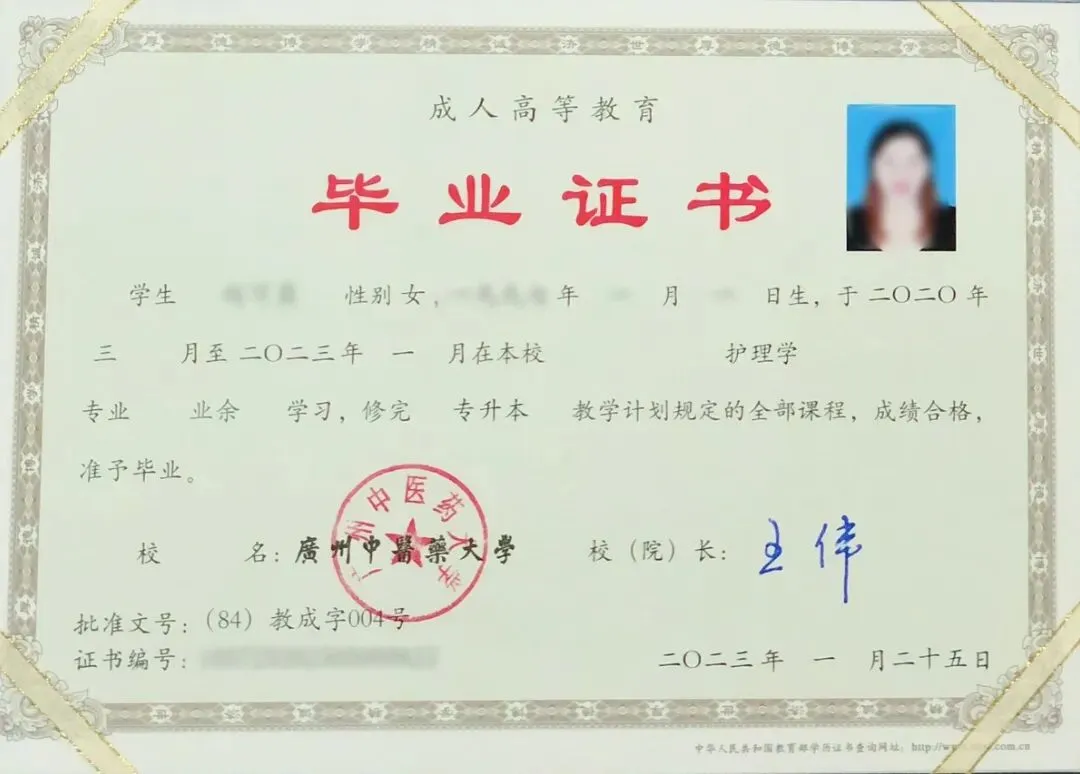 成人高等教育
毕业证书
学生 性别 女， 年 月 日生，于 二〇二〇 年
三 月至 二〇二三 年 一 月在本校 护理学
专业 业余 学习，修完 专升本 教学计划规定的全部课程，成绩合格，
准予毕业。
广州中医药大学
校 名：廣州中醫藥大學 校（院）长：王伟
批准文号：（84）教成字004号
证书编号：
二〇二三 年 一 月二十五日
中华人民共和国教育部学历证书查询网址：http://www. .com.cn